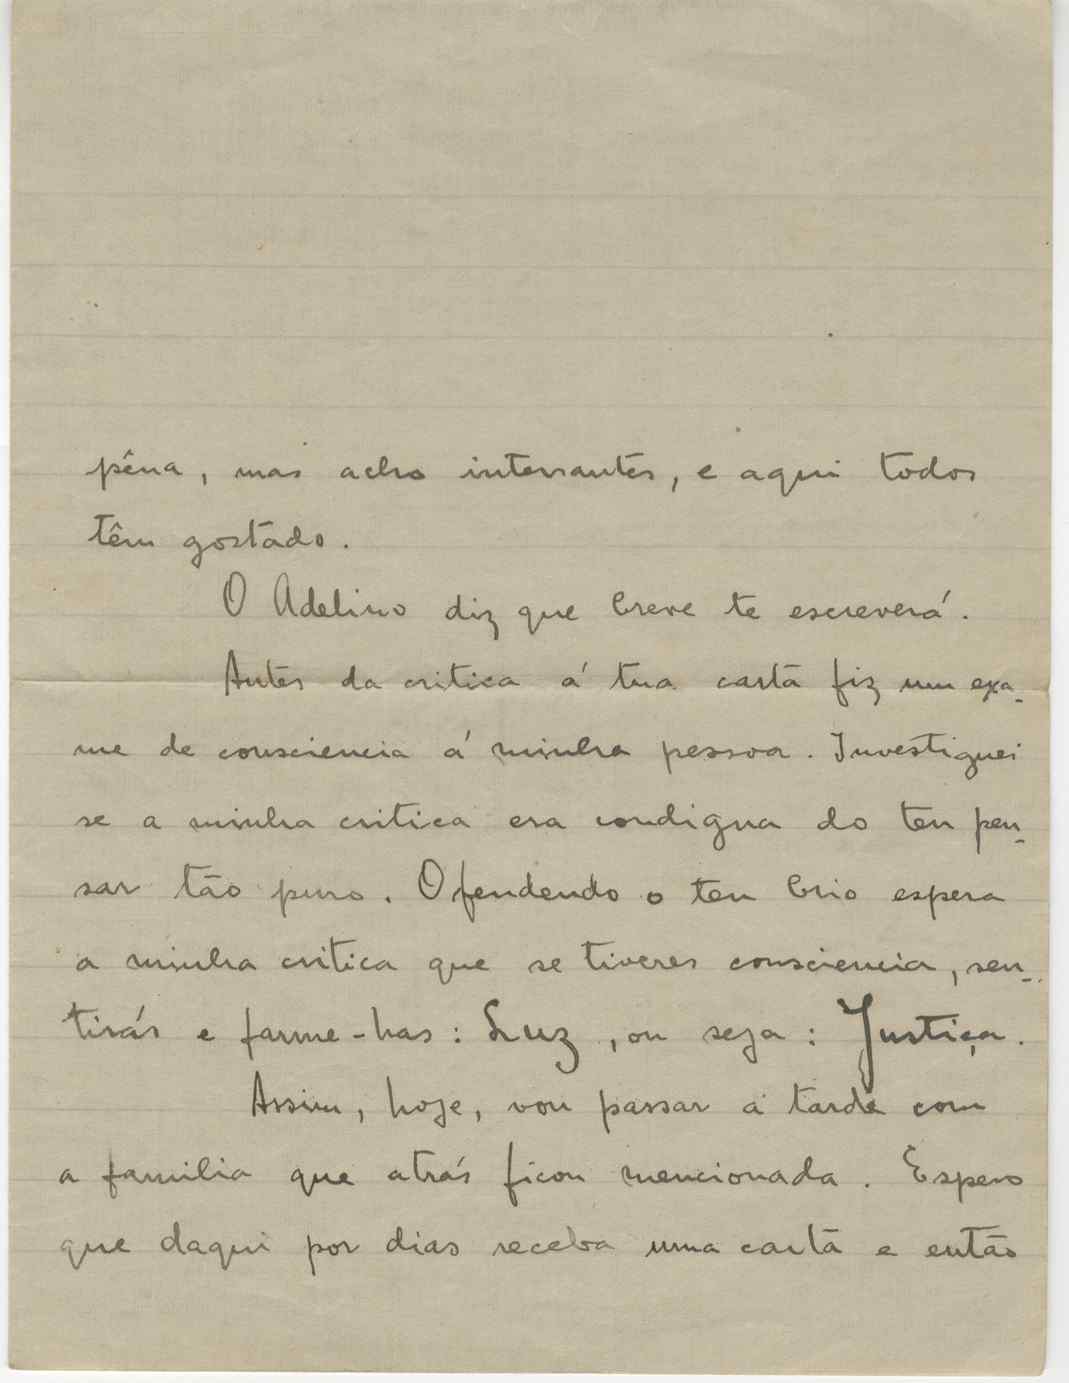 pêna, mas acho interrantes, e aqui todos
têm gostado.
O Adelino diz que breve te escreverá.
Antes da critica á tua carta fiz um exa-
me de consciencia á minha pessoa. Investiguei
se a minha critica era condigna do teu pen-
sar tão puro. Ofendendo o teu brio espera
a minha critica que se tiveres consciencia, sen-
tirás e farme-has: Luz, ou seja: Justiça.
Assim, hoje, vou passar a tarde com
a familia que atrás ficou mencionada. Espero
que daqui por dias receba uma carta e então